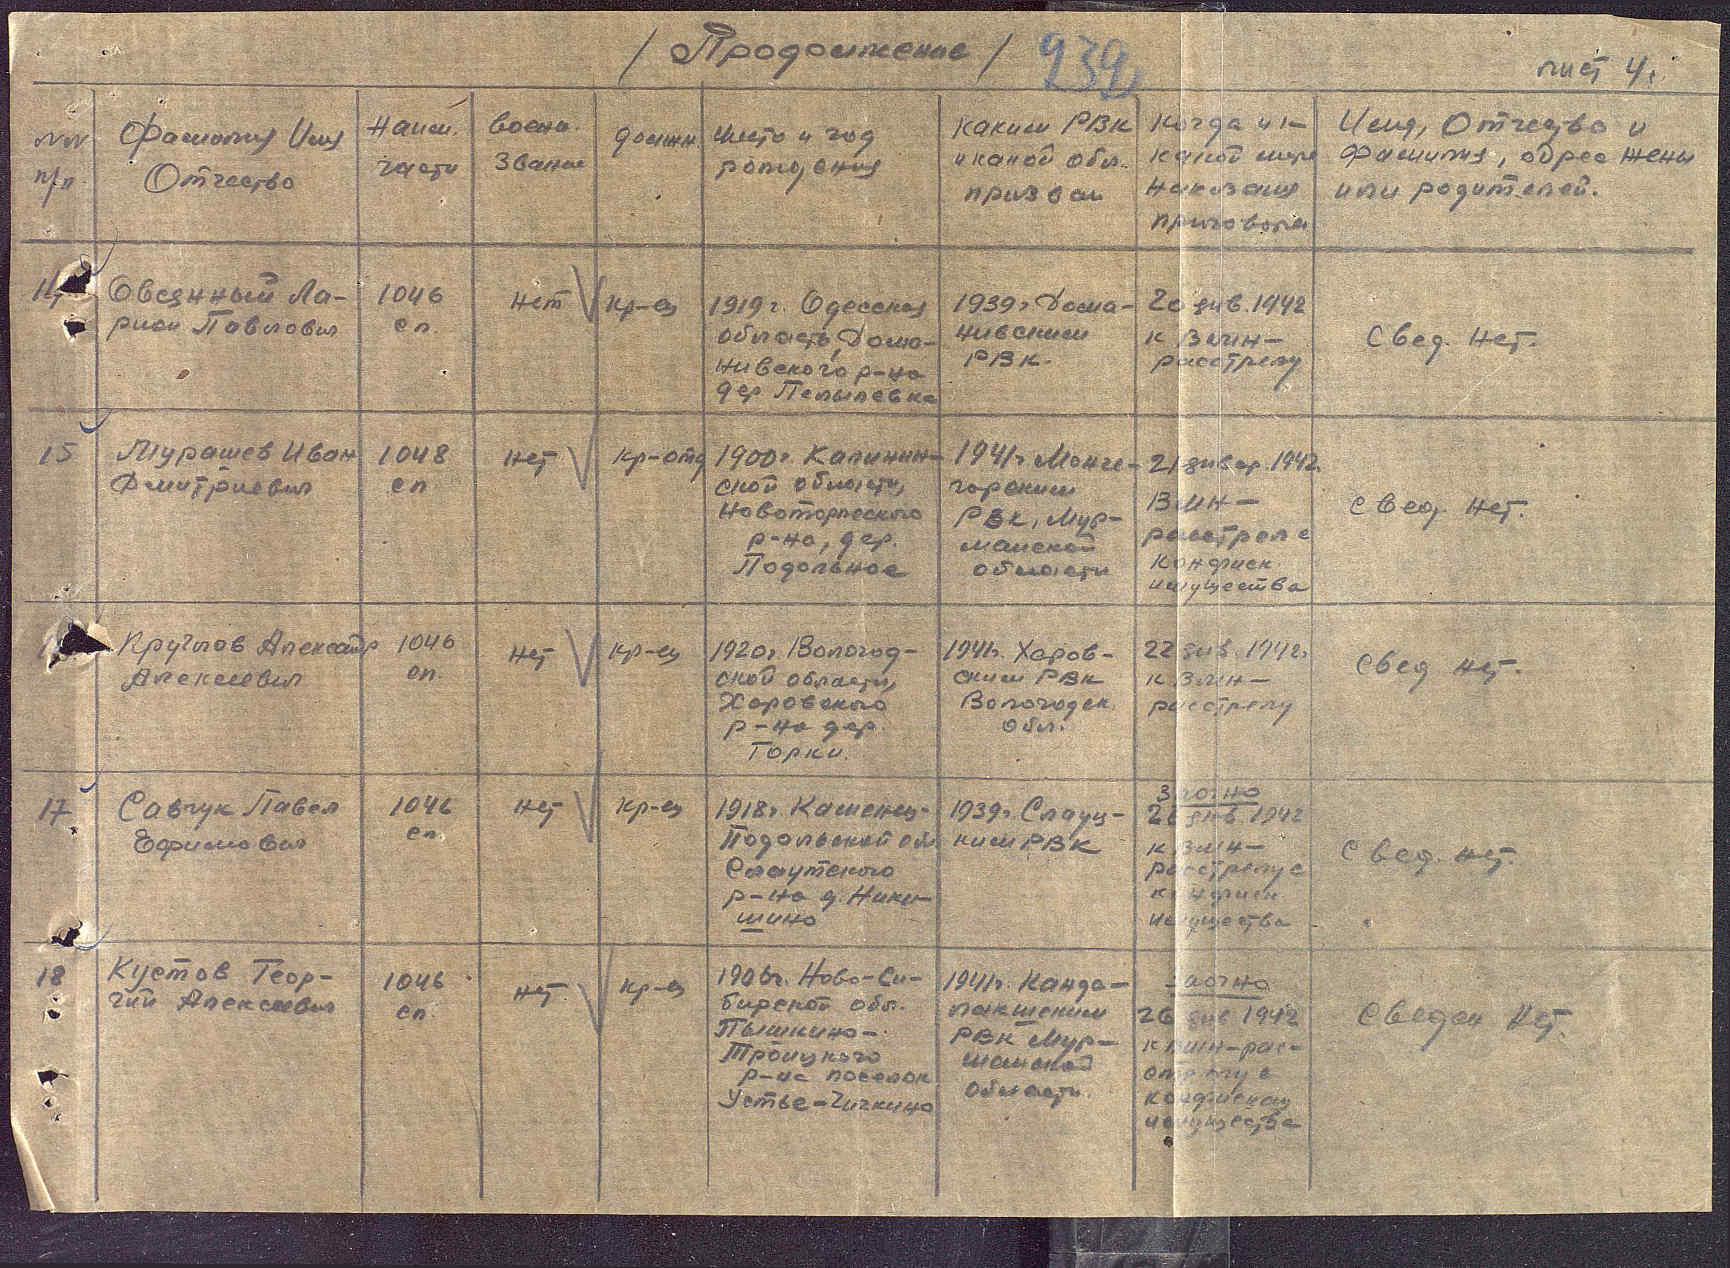 / Продолжение /
939
лист 4.
NN п/п
Фамилия Имя
Отчество
Наим.
части
воен.
звание
должн.
Место и год
рождения
Каким РВК
и какой обл.
призван
Когда и к
какой мере
наказания
приговорен
Имя, Отчество и
фамилия, адрес жены
или родителей.
14
Овсянный Ла-
рион Павлович
1046
сп.
нет
кр-ец
1919 г. Одесская
область, Дома-
нивского р-на
дер
1939 г. Дома-
нивским
РВК.
20 янв. 1942
к ВМН-
расстрелу
Свед. нет.
15
Мурашев Иван
Дмитриевич
1048
сп
нет
кр-отд
1900 г. Калинин-
ской области,
Новоторжского
р-на, дер.
Подольное
1941 г. Монче-
горским
РВК, Мур-
манской
области
21 январ. 1942
ВМН-
расстрел с
конфиск
имущества
Свед. нет.
Круглов Александр
Алексеевич
1046
сп
нет
кр-ец
1920 г. Вологод-
ской области,
Харовского
р-на дер.
Горки.
1941 г. Харов-
ским РВК
Вологодск.
обл.
22 янв. 1942 г.
к ВМН-
расстрелу
Свед нет.
17
Савчук Павел
Ефимович
1046
сп.
нет
кр-ец
1918 г. Каменец-
Подольской обл
Славутского
р-на д. Ники-
шино
1939 г. Слауц-
ким РВК
Заочно
26 янв. 1942
к ВМН-
расстрелу с
конфиск
имущества
Свед. нет.
18
Кустов Геор-
гий Алексеевич
1046
сп.
нет
кр-ец
1906 г. Ново-Си-
бирской обл.
Пышкино-
Троицкого
р-на поселок
Устье-Чичкино
1941 г. Канда-
лакшским
РВК Мур-
манской
области.
Заочно
26 янв 1942
к ВМН-рас-
стрелу с
конфискац
имущества
Сведен нет.